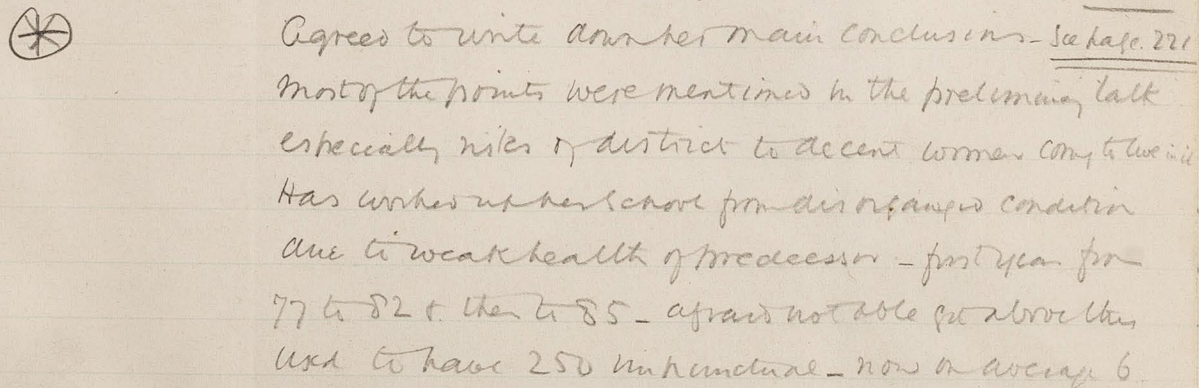 Agreed to write down her main conclusions - See page. 221
Most of the points were mentioned in the preliminary talk
especially risks of district to decent women coming to live in it
Has worked up her School from disorganized condition
due to weak health of predecessor - first year from
77 to 82 & then to 85 - afraid not able get above this
used to have 250 unpunctual - now on average 6